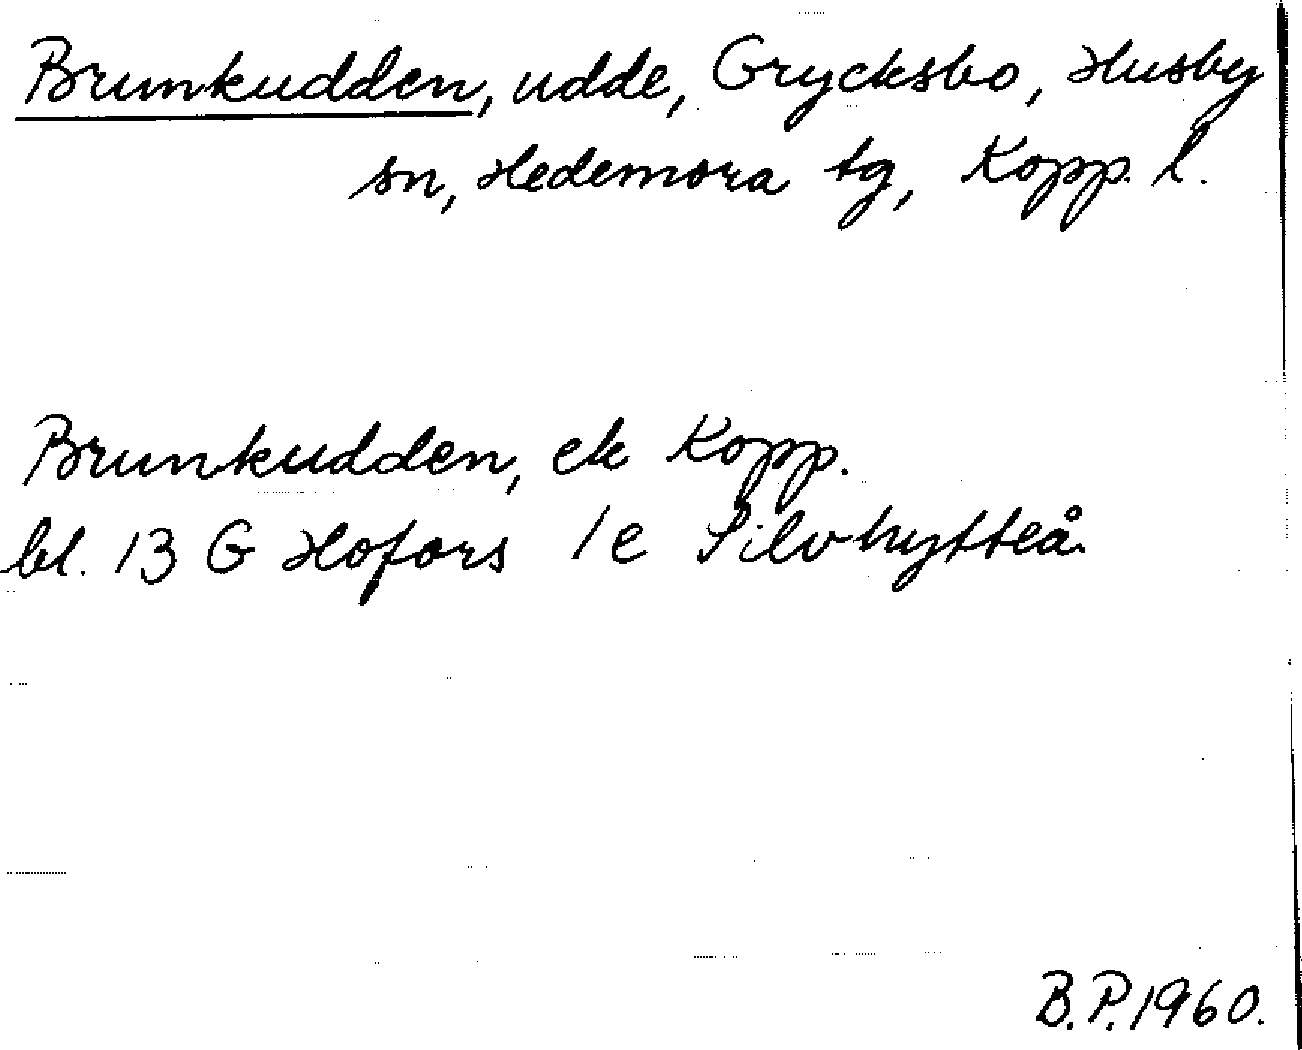 Brunkudden, udde, Grycksbo, Husby
sn, Hedemora tg, Kopp. l.
Brunkudden, ek Kopp.
bl. 13 G Hofors 1e Silvhytteå
B.P. 1960.